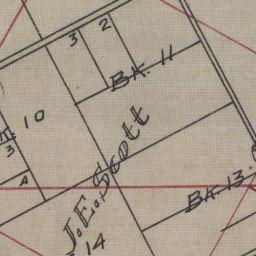 3 2
BK. 11
10
3
4
J.E. Scott
BK. 13
14